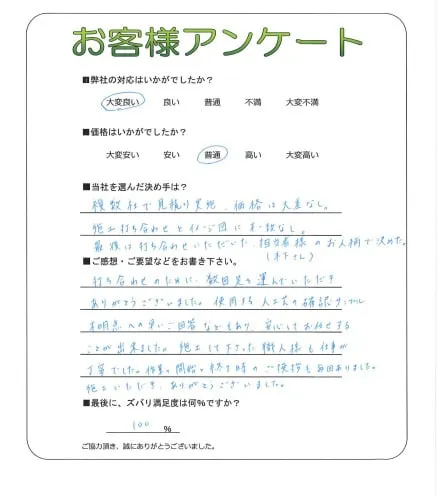 お客様アンケート
■弊社の対応はいかがでしたか?
大変良い 良い 普通 不満 大変不満
■価格はいかがでしたか?
大変安い 安い 普通 高い 大変高い
■当社を選んだ決め手は?
複数社で見積り実施、価格は大差なし。
施工打ち合わせとイメージ図に 大差なし。
最後は打ち合わせいただいた、担当者様のお人柄で決めた。
(木下さん)
■ご感想・ご要望などをお書き下さい。
打ち合わせのために、数回足を運んでいただき
ありがとうございました。使用する人工芝の確認サンプル
不明点への早いご回答などもあり、安心してお任せする
ことが出来ました。施工して下さった職人様も仕事が
丁寧でした。作業の開始・終了時のご挨拶も毎回ありました。
施工いただき、ありがとうございました。
■最後に、ズバリ満足度は何%ですか?
100 %
ご協力頂き、誠にありがとうございました。